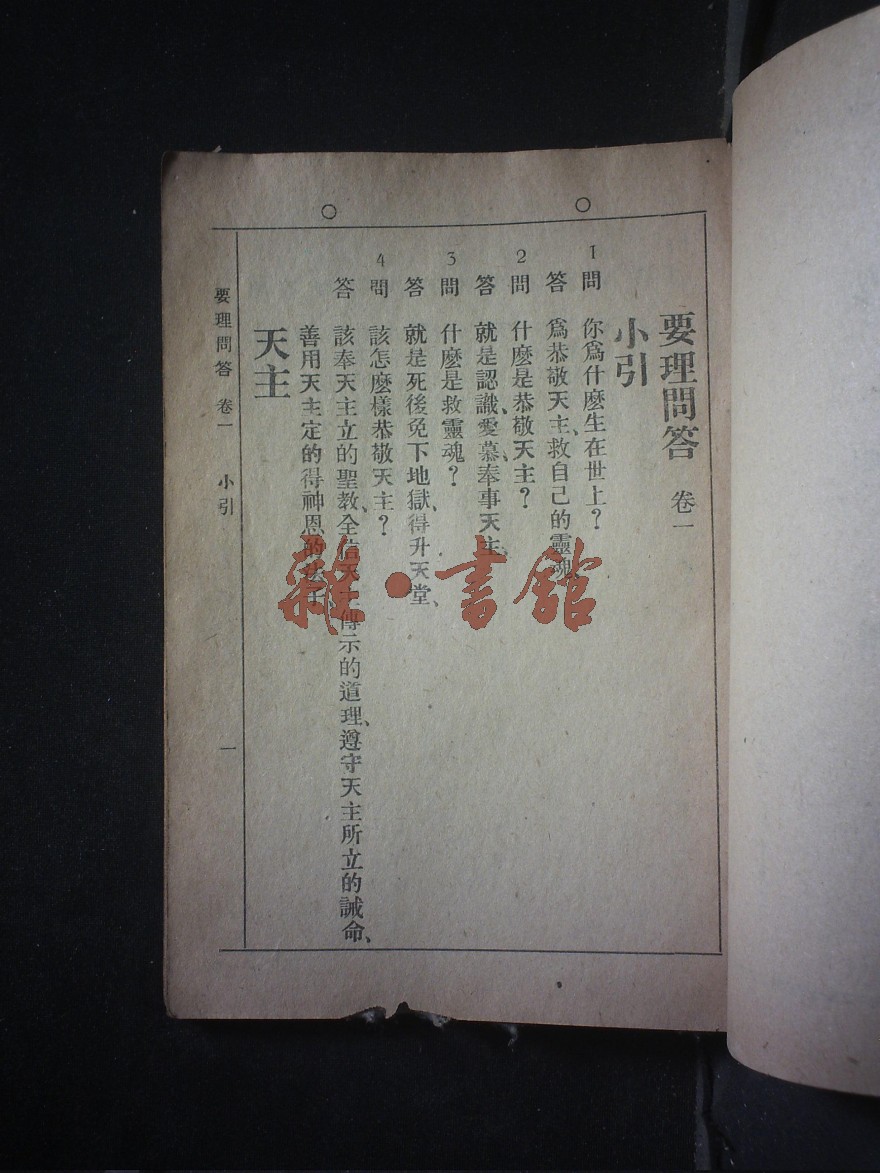 要理問答 卷一
小引
1 問 你爲什麼生在世上？
答 爲恭敬天主、救自己的靈魂、
2 問 什麼是恭敬天主？
答 就是認識、愛慕、奉事天主、
3 問 什麼是救靈魂？
答 就是死後免下地獄、得升天堂、
4 問 該怎麼樣恭敬天主？
答 該奉天主立的聖教、全信天主傳示的道理、遵守天主所立的誡命、
善用天主定的得神恩的
天主
要理問答 卷一 小引 一
雜·書館